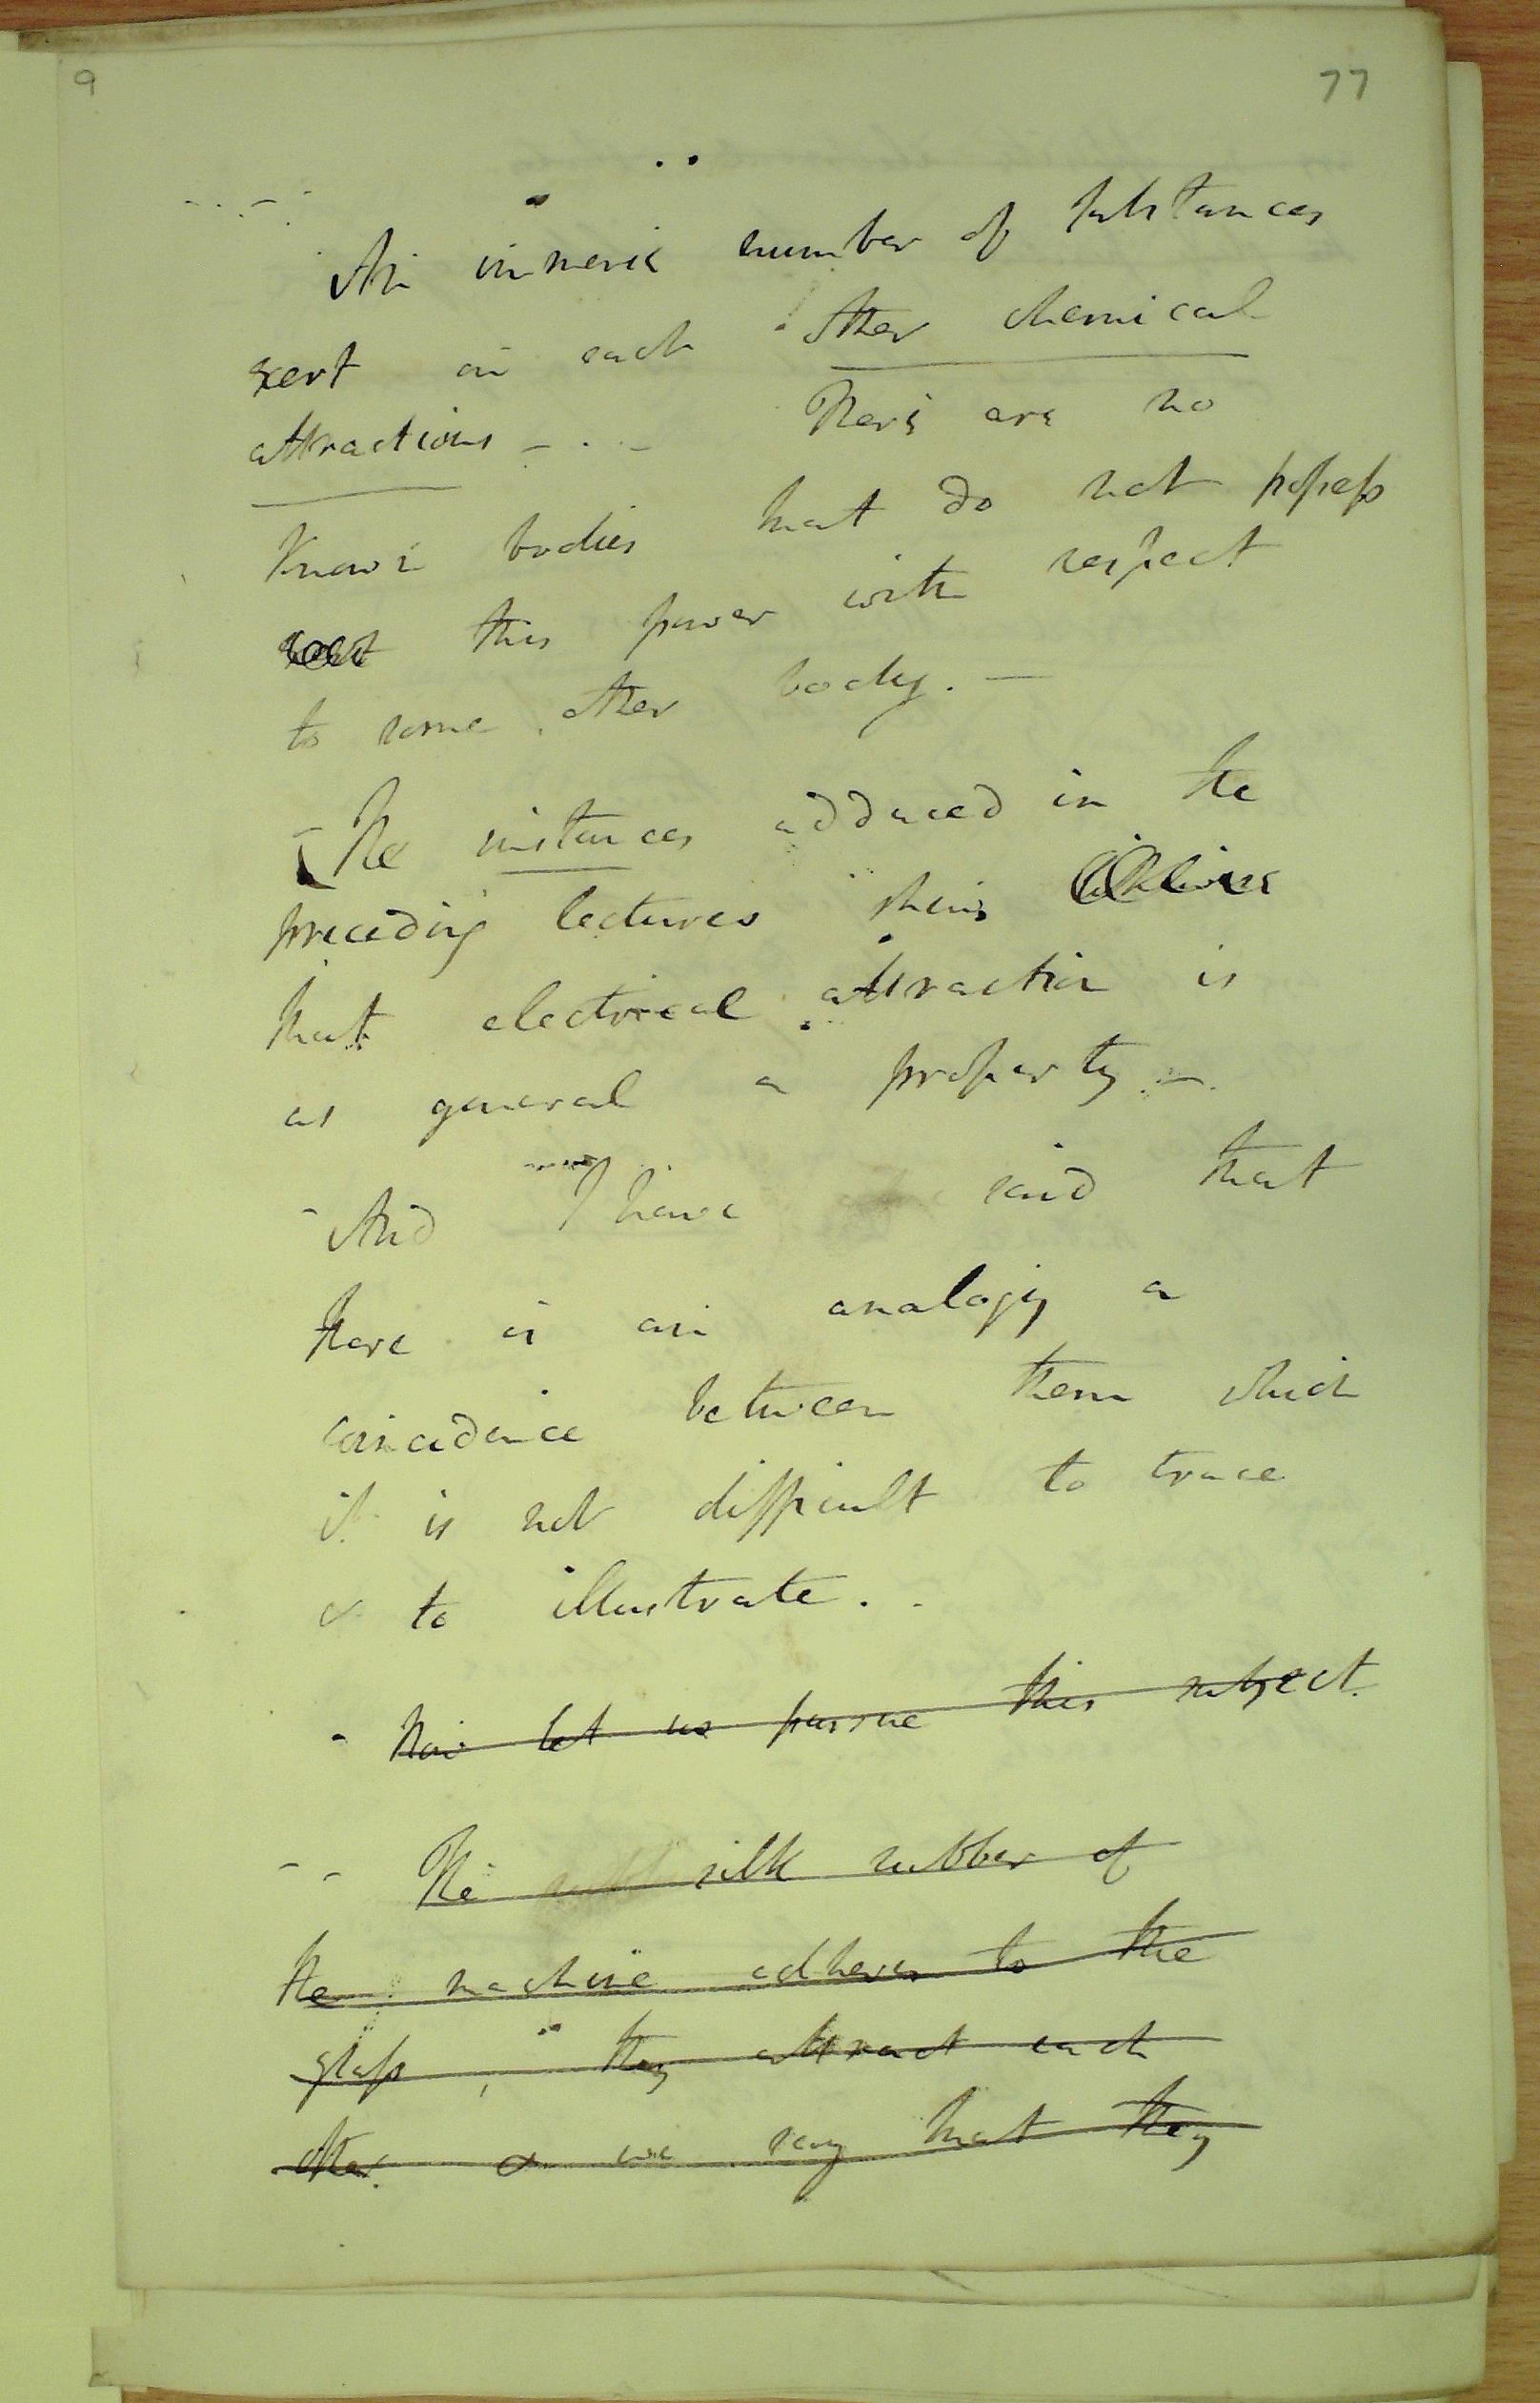 9
77
An immense number of substances
exert on each other chemical
attractions - . - There are no
known bodies that do not possess
this power with respect
to some other body. -
- The instances adduced in the
preceding lectures shew
that electrical attraction is
as general a property -.
- And I have said that
there is an analogy a
coincidence between them which
it is not difficult to trace
& to illustrate. .
- Now let us pursue this subject.
- - The silk rubber of
the machine adheres to the
glass, they attract each
other & we say that they